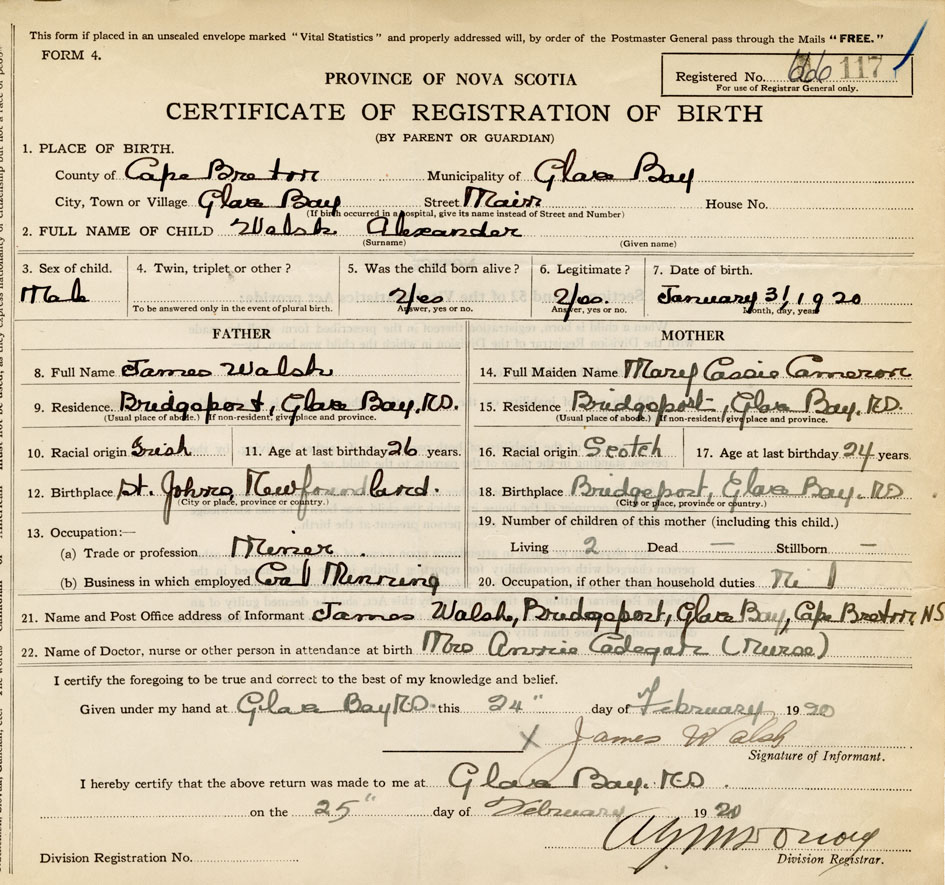 This form if placed in an unsealed envelope marked "Vital Statistics" and properly addressed will, by order of the Postmaster General pass through the Mails "FREE."
FORM 4.
PROVINCE OF NOVA SCOTIA
Registered No. 117
For use of Registrar General only.
CERTIFICATE OF REGISTRATION OF BIRTH
(BY PARENT OR GUARDIAN)
1. PLACE OF BIRTH.
County of Cape Breton Municipality of Glace Bay
City, Town or Village Glace Bay Street Main House No.
(If birth occurred in a hospital, give its name instead of Street and Number)
2. FULL NAME OF CHILD Walsh Alexander
(Surname) (Given name)
3. Sex of child. 4. Twin, triplet or other? 5. Was the child born alive? 6. Legitimate? 7. Date of birth.
Male Yes Yes. January 31, 1920
To be answered only in the event of plural birth. Answer, yes or no. Answer, yes or no. Month, day, year
FATHER MOTHER
8. Full Name James Walsh 14. Full Maiden Name Mary Cassie Cameron
9. Residence. Bridgeport, Glace Bay. 15. Residence Bridgeport, Glace Bay.
(Usual place of abode.) If non-resident, give place and province. (Usual place of abode.) If non-resident, give place and province.
10. Racial origin Irish 11. Age at last birthday 26 years. 16. Racial origin Scotch 17. Age at last birthday 24 years.
12. Birthplace St. Johns, Newfoundland. 18. Birthplace Bridgeport, Glace Bay.
(City or place, province or country.) (City or place, province or country.)
13. Occupation:— 19. Number of children of this mother (including this child.)
(a) Trade or profession Miner. Living 2 Dead — Stillborn —
(b) Business in which employed Coal Minning 20. Occupation, if other than household duties
21. Name and Post Office address of Informant James Walsh, Bridgeport, Glace Bay, Cape Breton, NS
22. Name of Doctor, nurse or other person in attendance at birth Mrs Annie (Nurse)
I certify the foregoing to be true and correct to the best of my knowledge and belief.
Given under my hand at Glace Bay this 24" day of February 1920
X James Walsh
Signature of Informant.
I hereby certify that the above return was made to me at Glace Bay.
on the 25" day of February 1920
Division Registration No. Division Registrar.